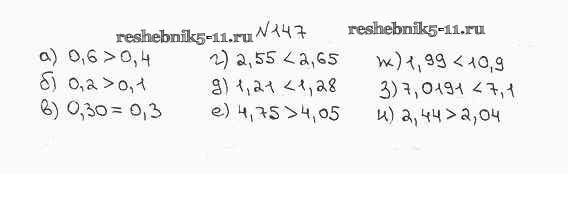 №147
reshebnik5-11.ru
reshebnik5-11.ru
а) 0,6 > 0,4
г) 2,55 < 2,65
ж) 1,99 < 10,9
б) 0,2 > 0,1
д) 1,21 < 1,28
з) 7,0191 < 7,1
в) 0,30 = 0,3
е) 4,75 > 4,05
и) 2,44 > 2,04